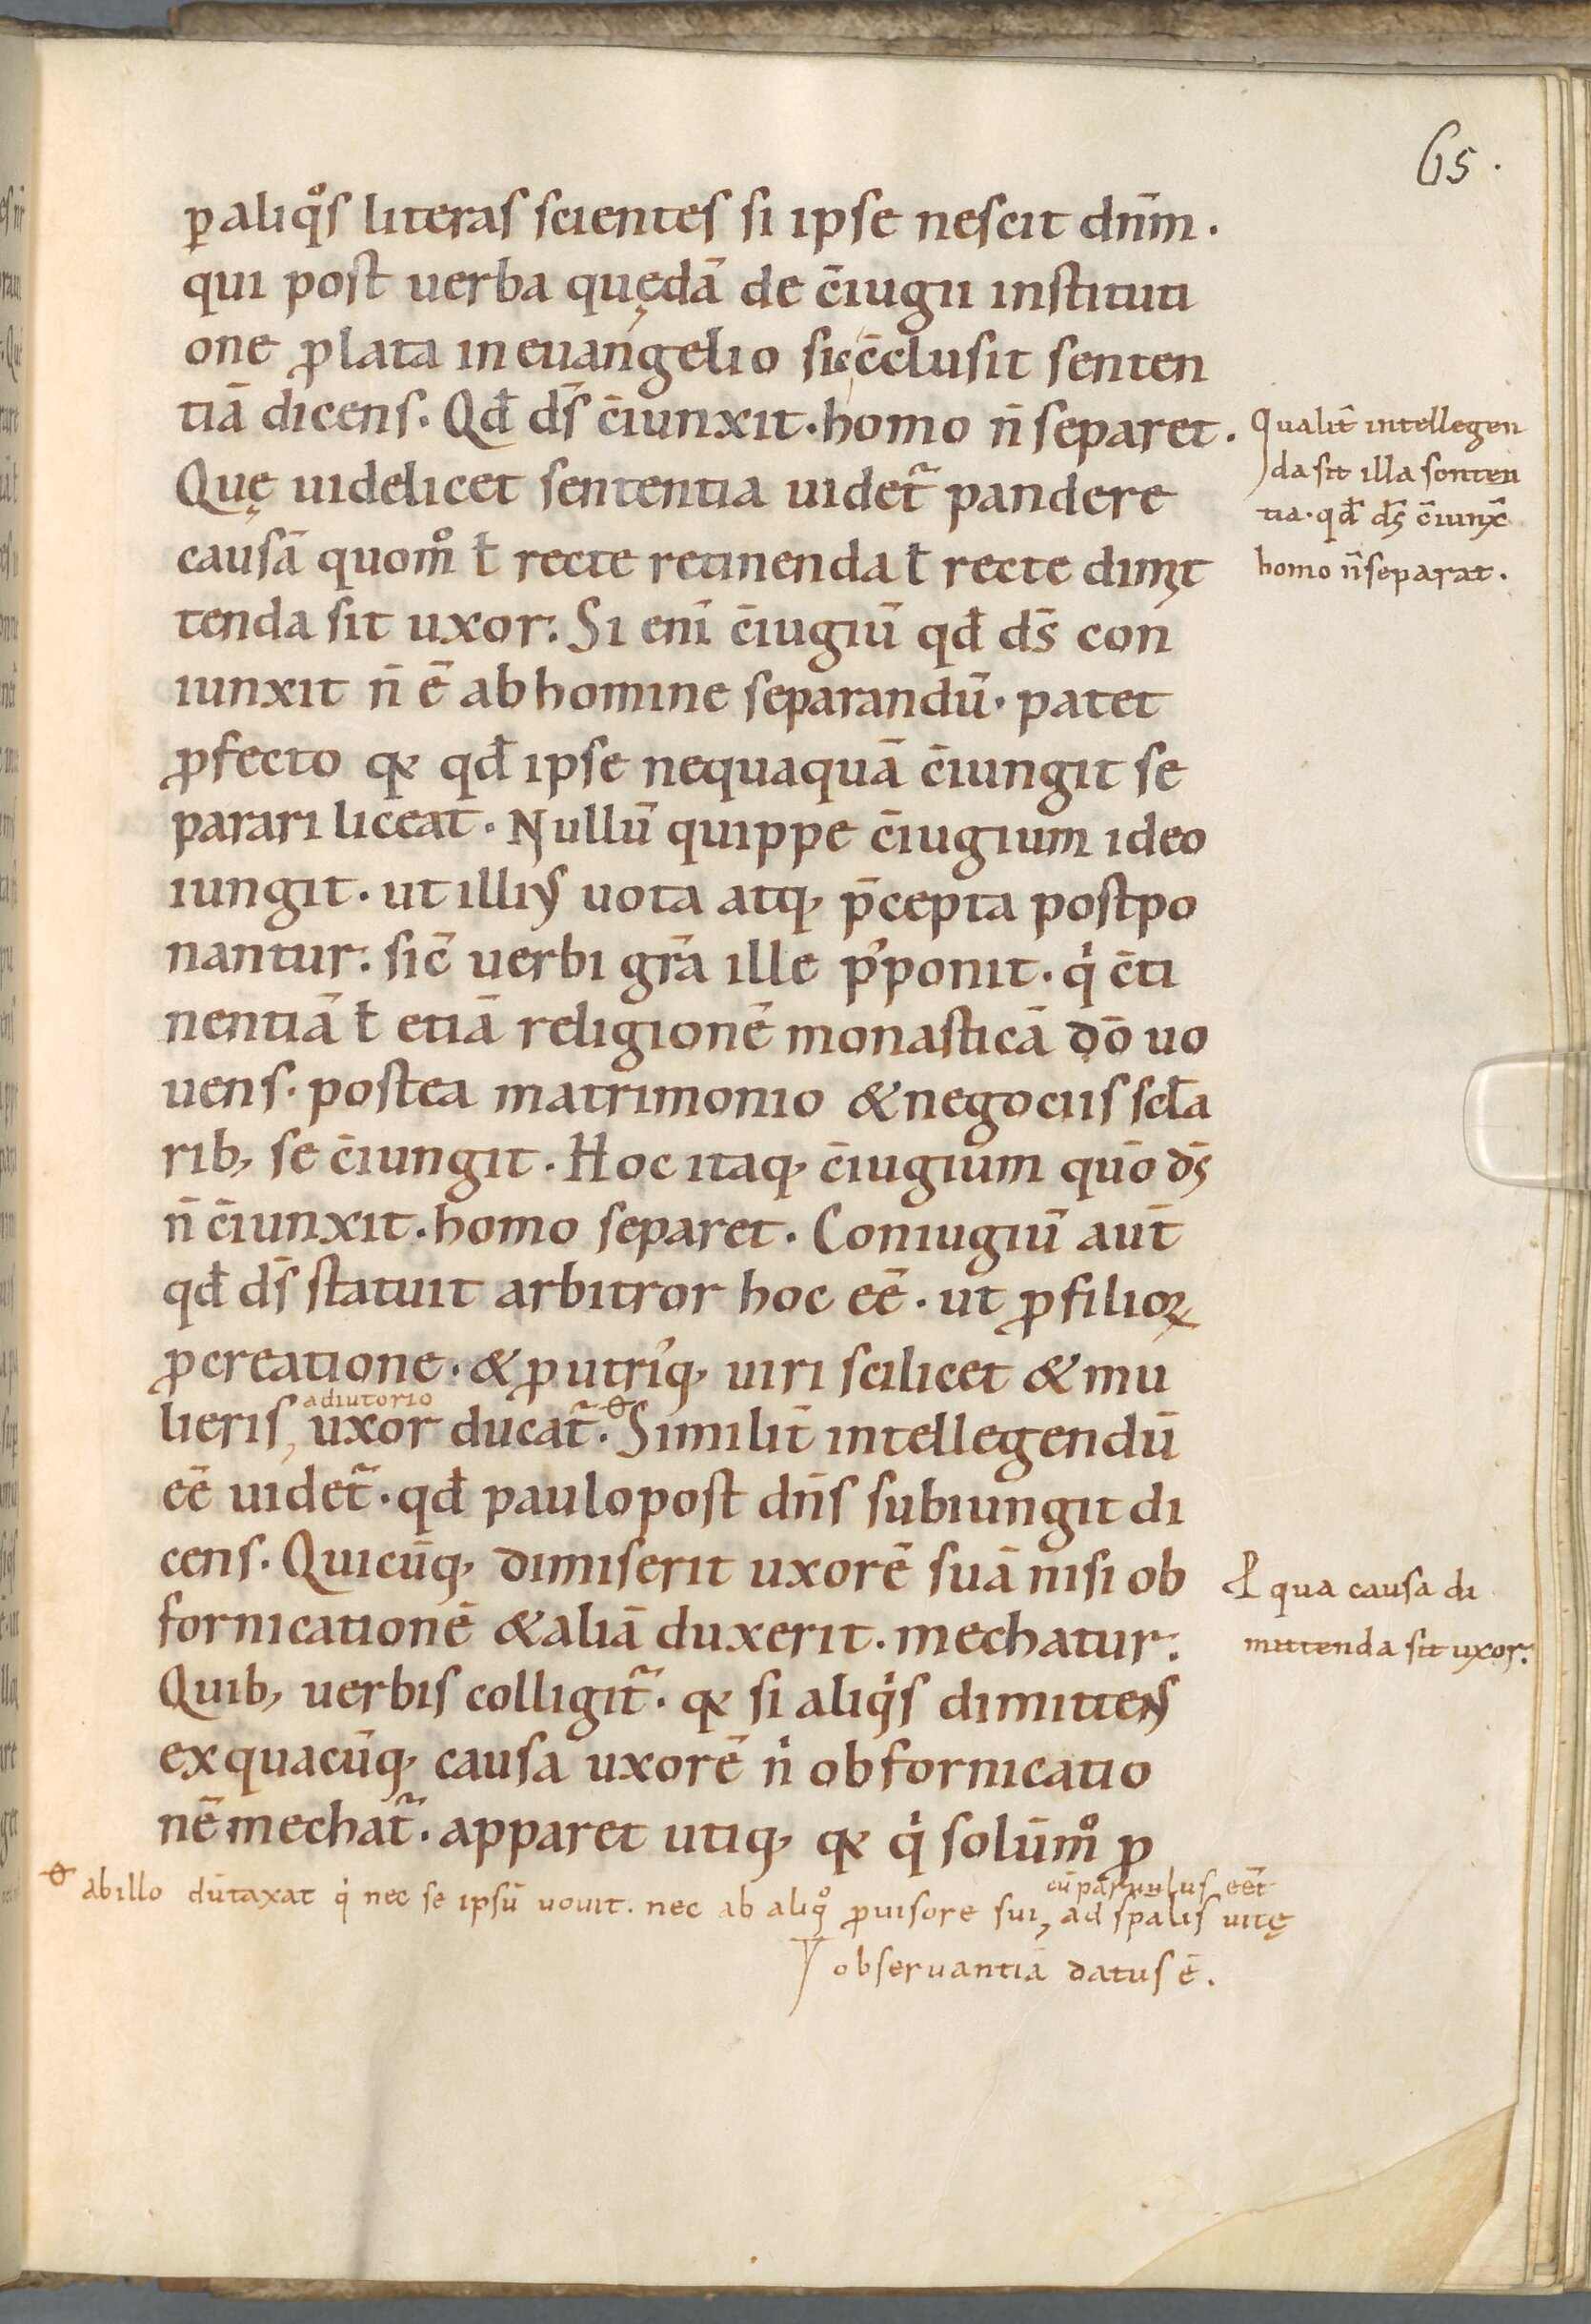 65.
ꝑ aliq̊s literas scientes si ipse nescit dn̄m.
qui post uerba quędā de c̄iugii instituti
one ꝓlata in euangelio sic c̄clusit senten
tiā dicens. Qđ ds̄ c̄iunxit. homo n̄ separet.
Quę uidelicet sententia uidet᷑ pandere
causā quom̊ ł recte retinenda ł recte dimit
tenda sit uxor. Si eni̅ c̄iugiū qđ ds̄ con
iunxit n̄ ē ab homine separandū. patet
ꝓfecto qꝫ qđ ipse nequaquā c̄iungit se
parari liceat. Nullū quippe c̄iugium ideo
iungit. ut illius uota atq, p̄cepta postpo
nantur. sic̄ uerbi gr̄a ille p̓ponit. qi c̄ti
nentiā ł etiā religionē monasticā dō uo
uens. postea matrimonio & negociis scła
rib, se c̄iungit. Hoc itaq, c̄iugium quō ds̄
n̄ c̄iunxit. homo separet. Coniugiū aut̄
qđ ds̄ statuit arbitror hoc eē. ut ꝓ filioꝝ
ꝓcreatione. & ꝓ utri̓q, uiri scilicet & mu
adiutorio
lieris, uxor ducat᷑. Similit̄ intellegendū
eē uidet᷑. qđ paulo post dn̄s subiungit di
cens. Quicūq, dimiserit uxorē suā nisi ob
fornicationē & aliā duxerit. mechatur.
Quib, uerbis colligit᷑. qꝫ si aliqis dimittens
ex quacūq, causa uxorē ni ob fornicatio
nē mechat᷑. apparet utiq, qꝫ qi solūm̊ ꝓ
Qualit̄ intellegen
da sit illa senten
tia. qđ ds̄ c̄iunx̄
homo n̄ separat.
P qua causa di
mittenda sit uxor.
cū paruulus eēt
ab illo dūtaxat qi nec se ipsū uouit. nec ab aliq̊ ꝓuisore sui, ad sp̄alis uitę
obseruantiā datus ē.